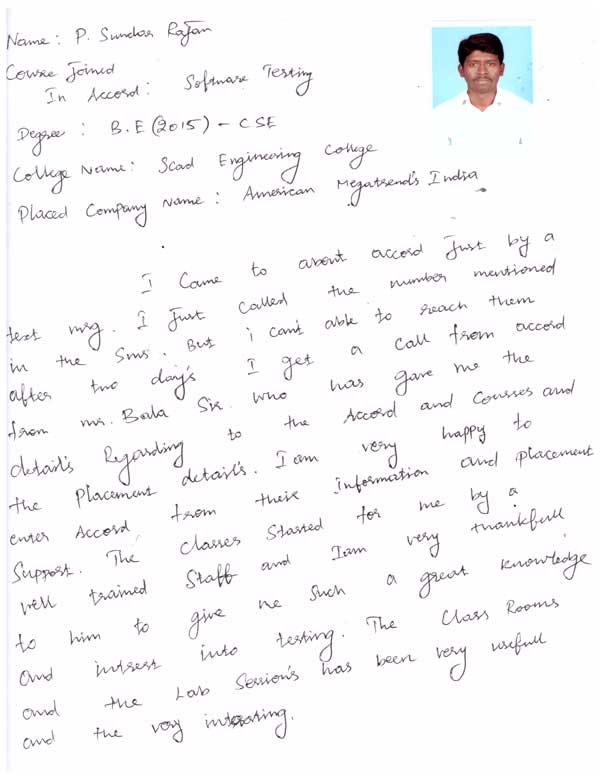 Name: P. Sundar Rajan
Course Joined
In Accord: Software Testing
Degree: B.E (2015) - CSE
College Name: Scad Engineering College
Placed Company Name: American Megatrend's India
I Came to about accord Just by a
text msg. I Just called the number mentioned
in the Sms. But i can't able to reach them
after two day's I get a call from accord
from mr. Bala Sir. who has gave me the
detail's Regarding to the Accord and Courses and
the Placement detail's. I am very happy to
enter Accord from their Information and placement
Support. The classes Started for me by a
well trained Staff and I am very thankfull
to him to give me such a great knowledge
and intrest into testing. The Class Rooms
and the Lab Session's has been very usefull
and the very